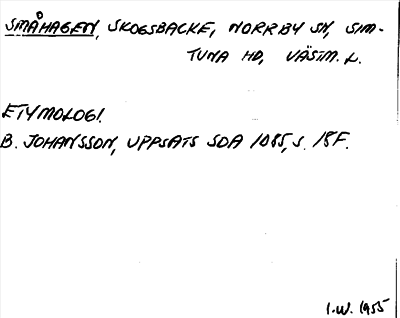 SMÅHAGEN, SKOGSBACKE, NORRBY SN, SIM-
TUNA HD, VÄSTM. L.
ETYMOLOGI.
B. JOHANSSON, UPPSATS SOA 1085, S. 18F.
I.W. 1955